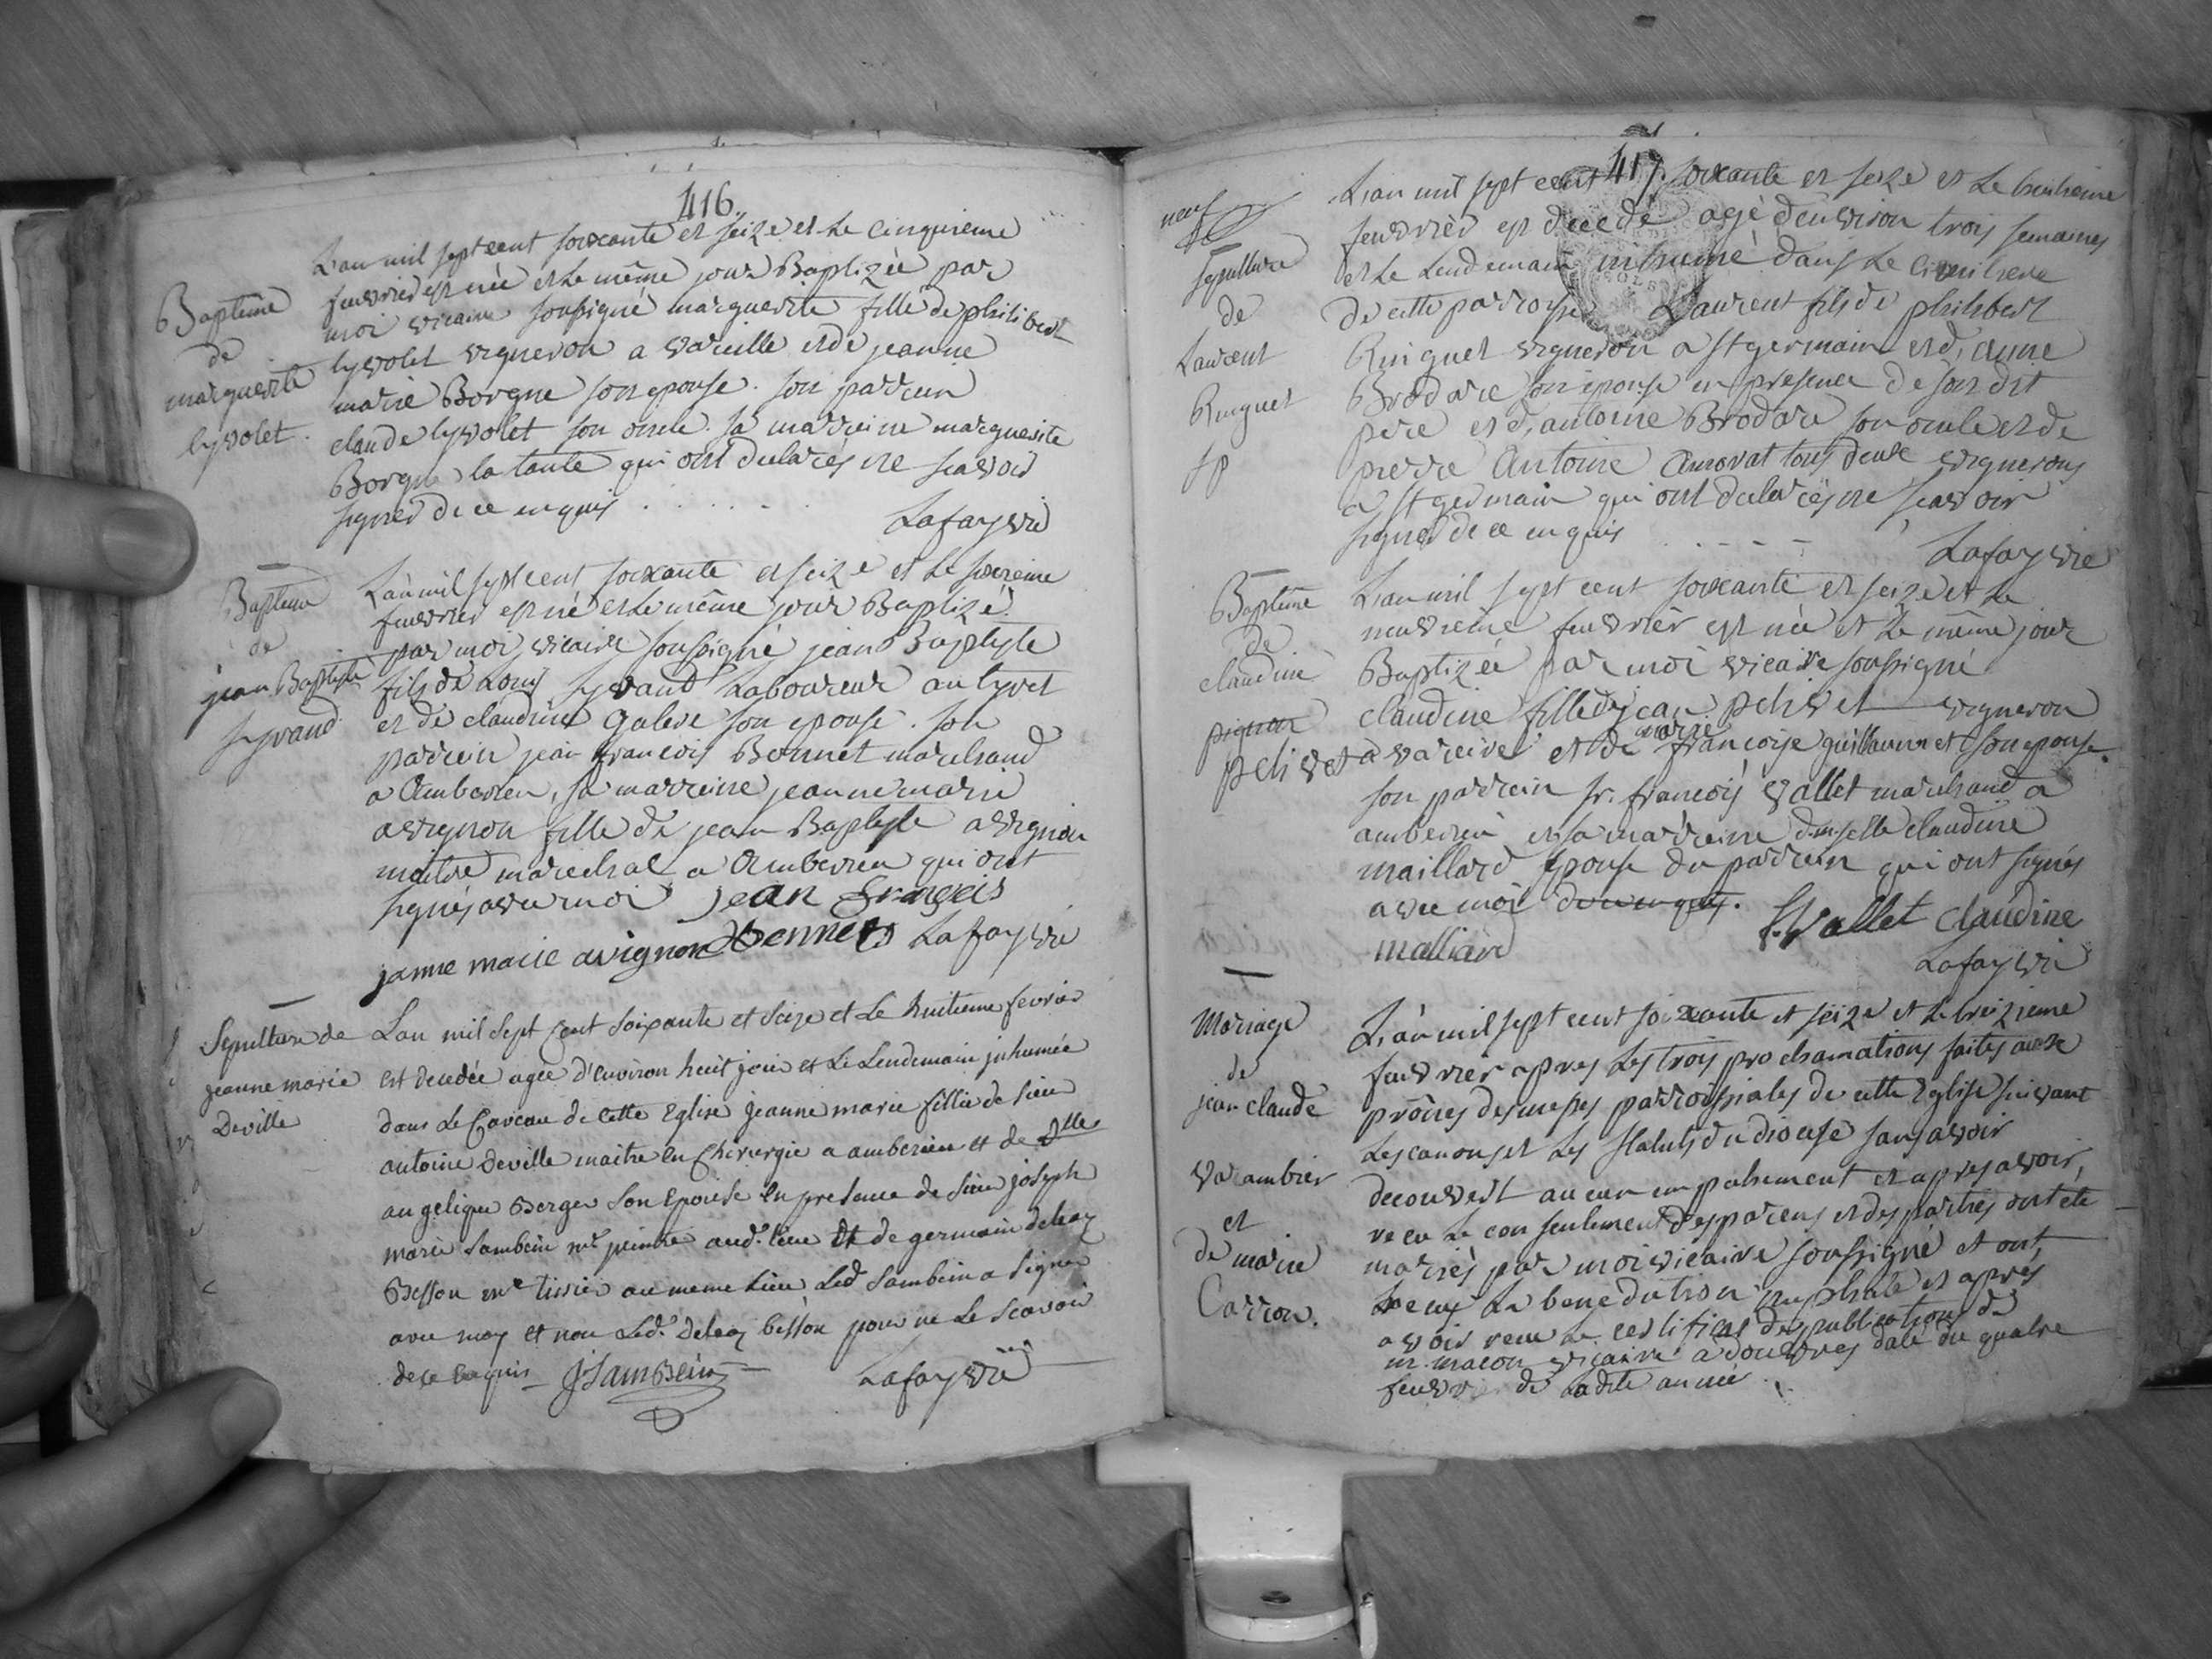 416.
Baptême
de
marguerite
lyvolet.
L'an mil sept cent soixante et seize et le cinquieme
fevvrier est née et le même jour Baptizée par
moi vicaire soussigné marguerite fille de philibert
lyvolet vigneron a vareille et de jeanne
marie Borgne son epouse. son parrein
claude lyvolet son oncle. sa marreine marguerite
Borgne la tante qui ont declarés ne scavoir
signer de ce enquis . . . . . .
Lafay vic
Bapteme
de
jean Baptiste
syvaud
L'an mil sept cent soixante et seize et le sixieme
fevvrier est né et le même jour Baptizé
par moi vicaire soussigné jean Baptiste
fils de Louis syvaud Laboureur au tyret
et de claudine Galere son epouse. son
parrein jean francois Bonnet marchand
a Amberieu, sa marreine jeanne marie
avignon fille de jean Baptiste avignon
maître marechal a Amberieu qui ont
signés avec moi jean françois
janne marie avignon Bonnet Lafay vic
Sepulture de
jeanne marie
Deville
Lan mil Sept Cent Soixante et Seize et Le huitieme fevrier
est decedée agée d'environ huit jour et Le Lendemain inhumée
dans Le Caveau de Cette Eglise jeanne marie fillie de Sieur
antoine Deville maitre en Chirurgie a amberieu et de Dlle
angelique Berger Son Epouse en presence de Sieur joseph
marie Sambein me peintre aud. lieu et de germain delery
Besson me tissier au meme Lieu Led Sambein a Signer
avec moy et non Led. Delery besson pour ne Le Scavoir
de ce Enquis J Sambein Lafay vic
417.
neuf
sepulture
de
Laurent
Ruiguet
fp
L'an mil sept cent soixante et seize et le huitieme
fevvrier est decedé agé d'environ trois semaines
et le lendemain inhumé dans le cimitiere
de cette parroisse Laurent fils de philibert
Ruiguet vigneron a St germain et d'anne
Brodare son epouse en presence de son dit
pere et d'antoine Brodare son oncle et de
pierre Antoine Amorat tous deux vignerons
a St germain qui ont declarés ne scavoir
signer de ce enquis - - - -
Lafay vic
Baptême
de
claudine
pelivet
L'an mil sept cent soixante et seize et le
neuvième fevvrier est née et le même jour
Baptizée par moi vicaire soussigné
claudine fille de jean pelivet vigneron
a vareille et de marie francoise guillaumet son epouse.
son parrein sr. francois vallet marchand a
amberieu et sa marreine dmselle claudine
maillard epouse du parrein qui ont signés
avec moi de ce enquis. f. Vallet claudine
malliard
Lafay vic
Mariage
de
jean claude
vacambier
et
de marie
Carron.
L'an mil sept cent soixante et seize et le treizieme
fevvrier apres les trois proclamations faites aux
prônes des messes parroissiales de cette Eglise suivant
les canons et les statuts du diocese sans avoir
decouvert aucun empechement et apres avoir
recu le consentement des parens et des parties ont eté
mariés par moi vicaire soussigné et ont
recus la benediction nuptiale et apres
avoir recu le certificat de publication de
mr. macon vicaire a douvres daté du quatre
fevvrier de ladite année.